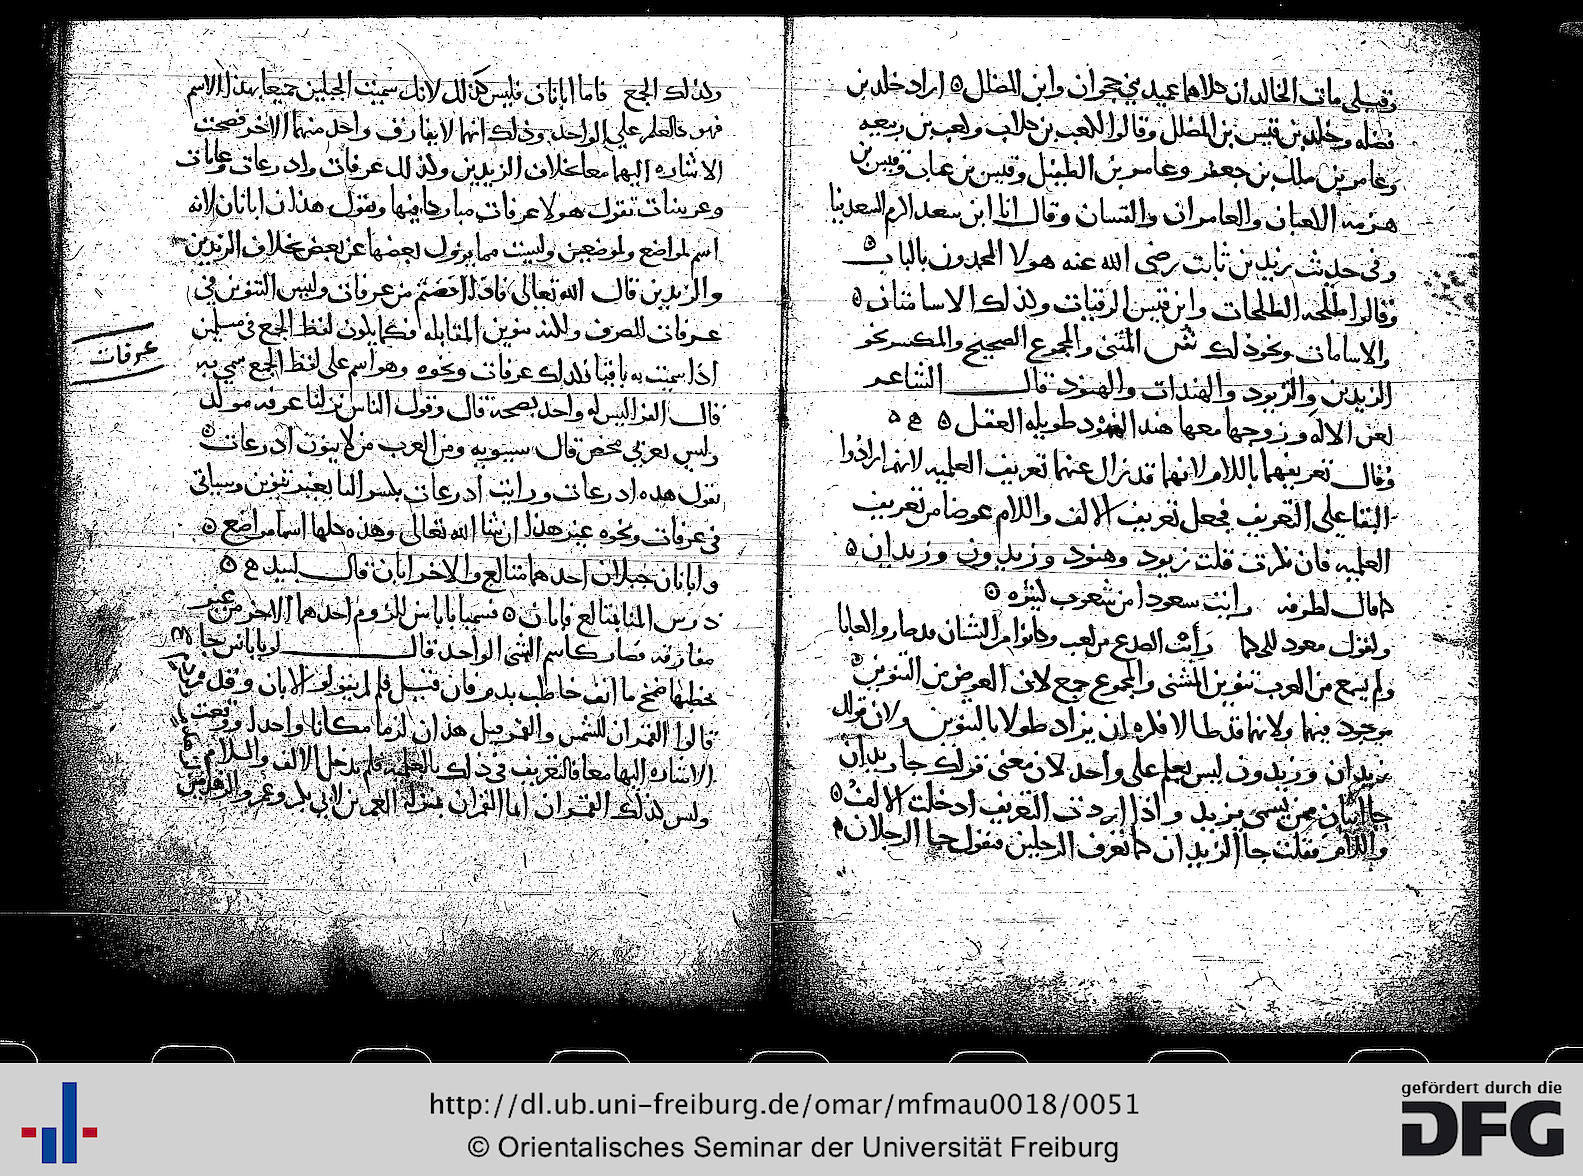 وقبلي مات الخالدان كلاهما عميد بني جحوان وابن المضلل ۞ اراد خلد بن
نضله وخلد بن قيس بن المضلل وقالوا الكعب بن كلاب وكعب بن ربيعه
وعامر بن ملك بن جعفر وعامر بن الطفيل وقيس بن عتاب وقيس بن
هزمه الكعبان والعامران والقيسان وقال انا ابن سعد اكرم السعدينا
وفى حديث زيد بن ثابت رضى الله عنه هولا المحمدون بالباب ۞
وقالوا طلحه الطلحات وابن قيس الرقيات وكذلك الاسامتان ۞
والاسامات ونحو ذلك ش المثنى والمجموع الصحيح والمكسر نحو
الزيدين والزيود والهندات والهنود قال الشاعر
لعن الاله وزوجها معها هند الهنود طويله الفعل ۞
وقال تعريفهما باللام لانهما قد زال عنهما تعريف العلميه لانهم ارادوا
البقا على التعريف فجعل تعريف الالف واللام عوضا من تعريف
العلميه فان نكرت قلت زيود وهنود وزيدون وزيدان ۞
كما قال طرفه رايت سعودا من شعوب كثيره ۞
ولقول معود الحكما رأيت الصدع من كعب وكانوا من الشنان قد صاروا كعابا
ولم يسمع من العرب تنوين المثنى والمجموع جمع لان العوض من التنوين ۞
موجود فيهما ولانهما قد طالا فكره ان يزاد طولا بالتنوين ولان قولك
زيدان وزيدون ليس بعلم على واحد لان معنى قولك جا زيدان
جا اثنان ممن يسمى بزيد واذا اردت التعريف ادخلت الالف ۞
واللام فقلت جا الزيدان كما تعرف الرجلين فتقول جا الرجلان
وكذلك الجمع فاما ابانان فليس كذلك لانك سميت الجبلين جميعا بهذا الاسم
فهو كالعلم على الواحد وذلك انهما لا يفارق واحد منهما الاخر فصحت
الاشاره اليهما معا بخلاف الزيدين وكذلك عرفات واذرعات وعانات
وعريتنات تقول هولا عرفات مباركا فيها وتقول هذان ابانان لانه
اسم لمواضع ولموضعين وليست مما يزول بعضها عن بعض بخلاف الزيدين
والزيدين قال الله تعالى فاذا افضتم من عرفات وليس التنوين في
عرفات للصرف ولكنه تنوين المقابله فكما يكون لفظ الجمع في مسلمين
اذا سميت به باقيا فكذلك عرفات ونحوه وهو اسم على لفظ الجمع سمي به
عرفات
قال الفرا ليس له واحد بصحه قال وقول الناس نزلنا عرفه مولد
وليس بعربي محض قال سيبويه ومن العرب من لا ينون اذرعات ۞
يقول هذه اذرعات ورايت اذرعات بكسر التا بغير تنوين وسياتى
فى عرفات ونحوه غير هذا ان شا الله تعالى وهذه كلها اسما مواضع ۞
وابانان جبلان احدهما متالع والاخر ابان قال لبيد ۞
درس المنا بمتالع فابان ۞ فسميا باباين للزوم احدهما الاخر من غير
مفارقه فصار كاسم الشى الواحد قال لو باباين جا
يخطبها ضرج ما انف خاطب بدم فان قيل فلم لم يقولوا الابانان وقد
قالوا القمران للشمس والقمر قيل هذان لزما مكانا واحدا ووقعت
الاشاره اليهما معا فالتعريف فى ذلك بالعلميه فلم تدخل الالف واللام
وليس كذلك القمران اما القمران بمنزله العمرين لابي بكر وعمر
http://dl.ub.uni-freiburg.de/omar/mfmau0018/0051
© Orientalisches Seminar der Universität Freiburg
gefördert durch die
DFG